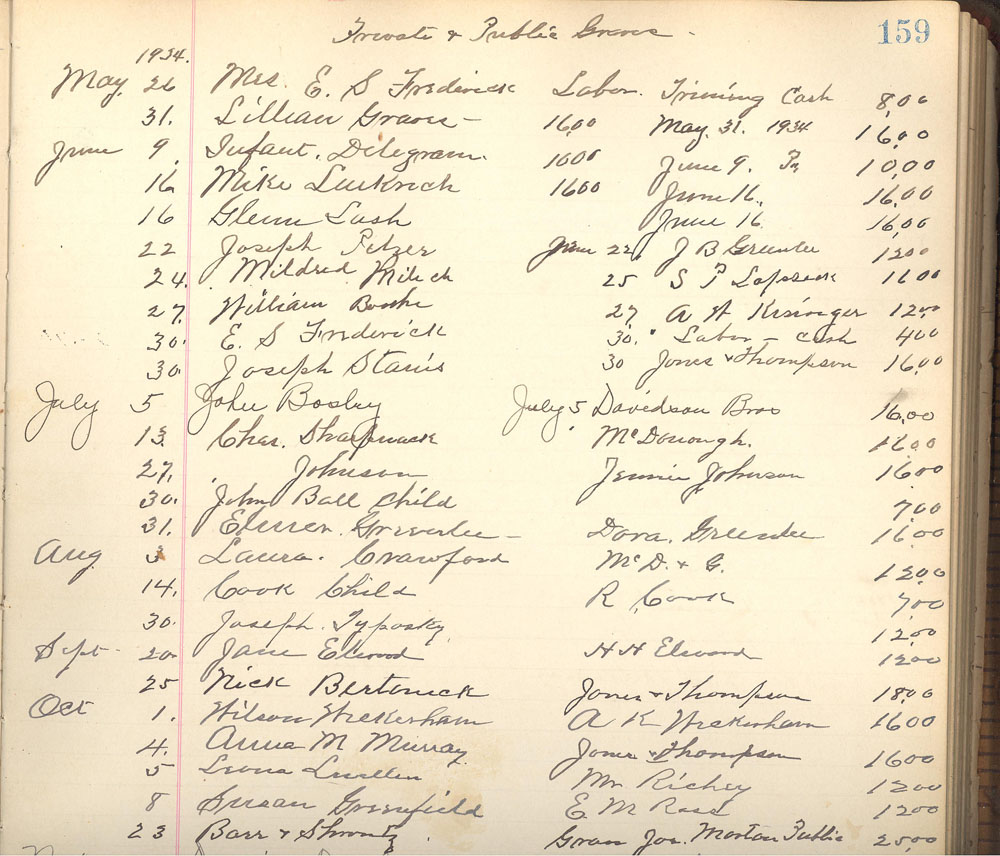 Private & Public Graves - 159
1934.
May 26 Mrs. E. S Frederick Labor. Triming Cash 8,00
31. Lillian Graves - 16,00 May. 31. 1934 16,00
June 9. Infant. Dilegram. 1000 June 9. 10,00
16 Mike 1600 June 16., 16,00
16 Glenn Lash June 16 16,00
22 Joseph Fetzer June 22, J B Greenlee 1200
24. Mildred Milich 25 S 1600
27. William 27, A H Kisinger 12,00
30. E. S Frederick 30. " Labor - cash 400
30 Joseph Stanis 30 Jones & Thompson 16,00
July 5 John Bosley July 5, Davidson Bros 16,00
13. Chas. Sharpnack McDonough. 1600
27. Johnson Jennie Johnson 1600
30. John Ball child 7,00
31. Dora. Greenlee 1600
Aug 3 Laura. Crawford McD. & G. 12,00
14. Cook Child R Cook 7,00
30. Joseph. Typosky 12,00
Sept - 20. Jane Elwood H H Elwood 1200
25 Nick Bertonick Jones & Thompson 18,00
Oct 1. Wilson Wickerham A K Wickerham 1600
4. Anna M Murray Jones & Thompson 1600
5 Leona Luellen Mr Richey 1200
8 Susan Greenfield E M Ross 1200
23 Barr & Shrontz Jos. Morton Public 25,00